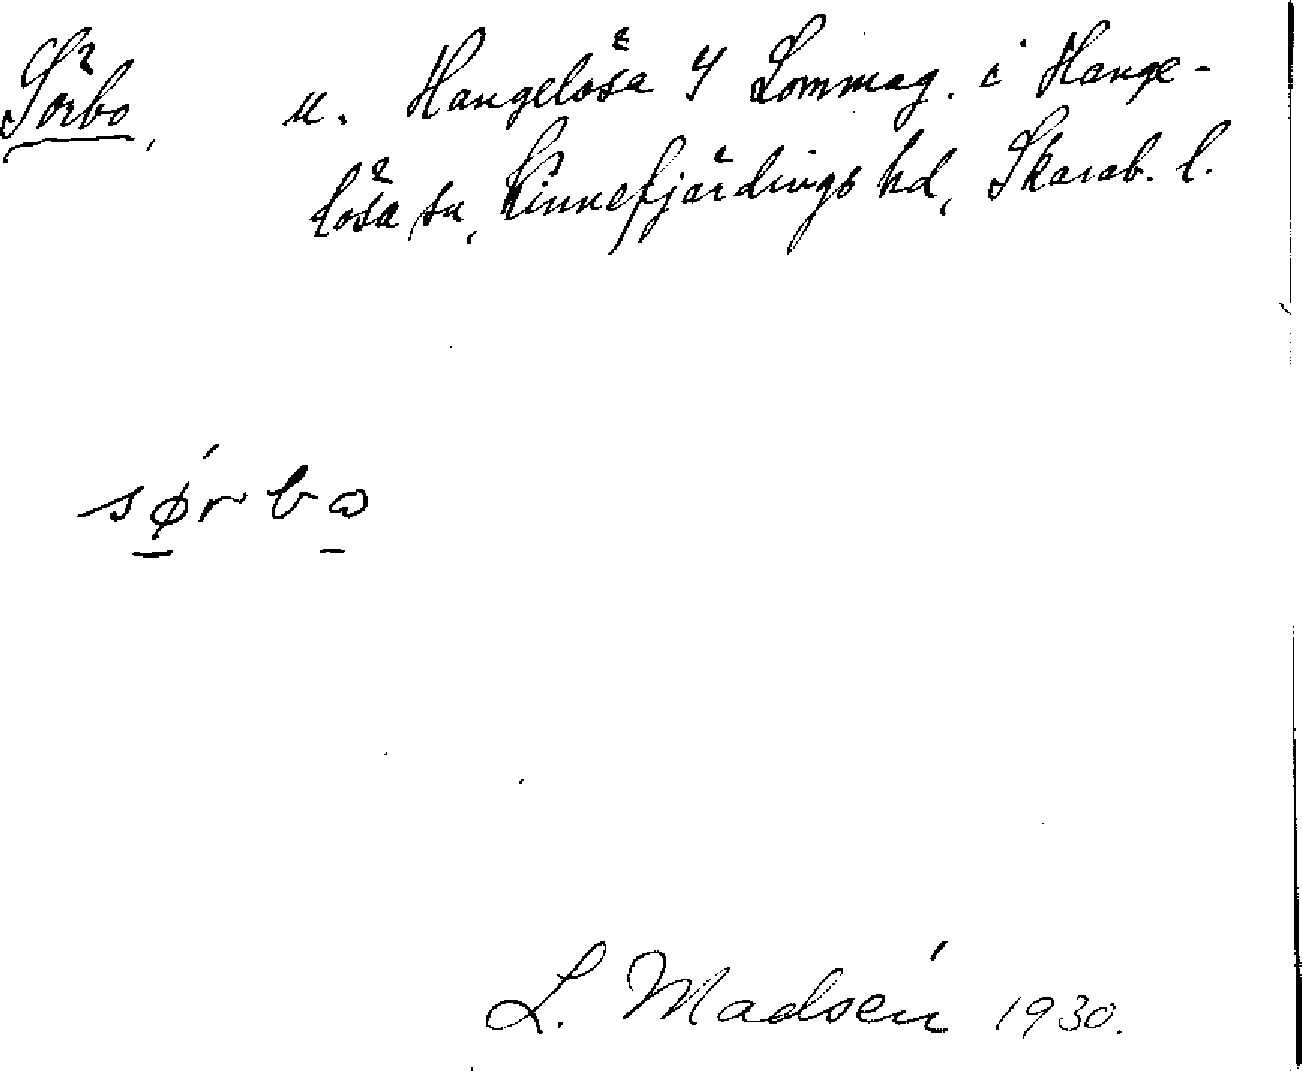 Sörbo, u. Hangelösa 4 Sommag. i Hange-
lösa sn, Kinnefjärdings hd, Skarab. l.
sǿ̠rbɷ̠
L. Madsén 1930.